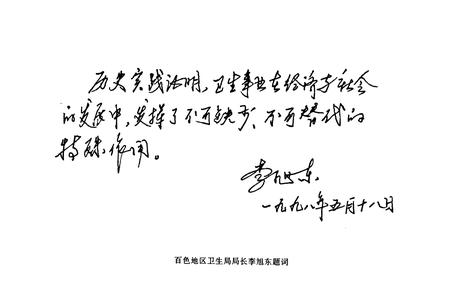 历史实践证明，卫生事业在经济与社会
的发展中，发挥了不可缺少、不可替代的
特殊作用。
李旭东
一九九八年五月十八日
百色地区卫生局局长李旭东题词